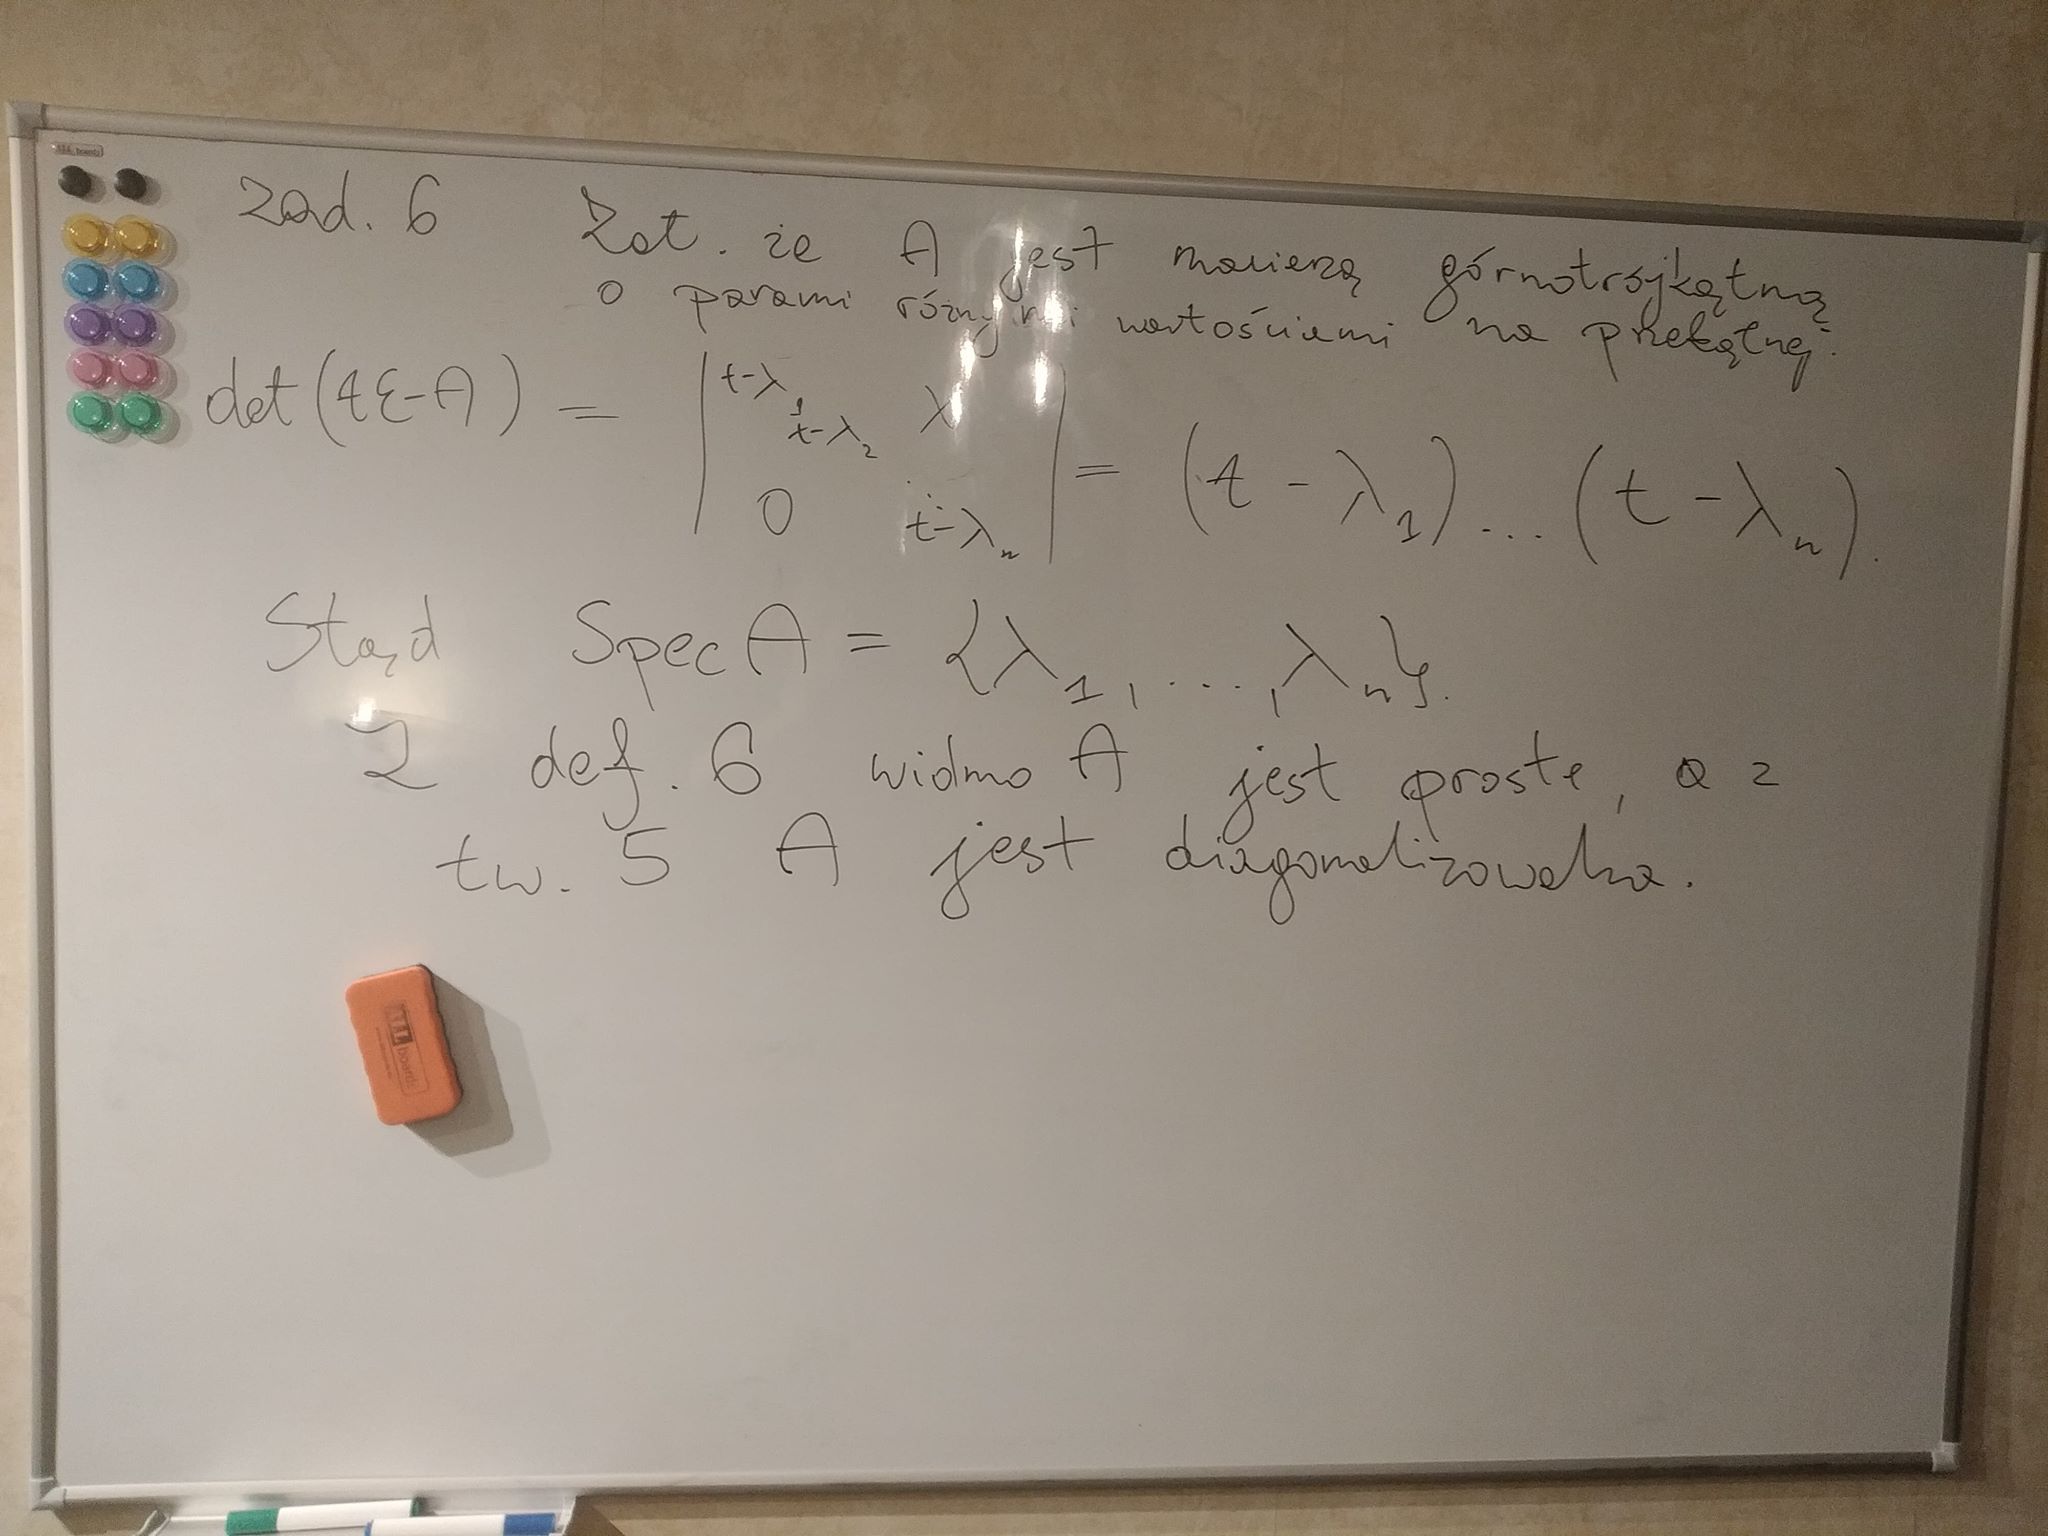 zad. 6 Zał. że A jest macierzą górnotrójkątną
o parami różnymi wartościami na przekątnej.
det(tE-A) = | t-λ₁ t-λ₂ * 0 ⋱ t-λₙ | = (t - λ₁) ... (t - λₙ).
Stąd Spec A = {λ₁, ..., λₙ}.
Z def. 6 widmo A jest proste, a z
tw. 5 A jest diagonalizowalna.
boards